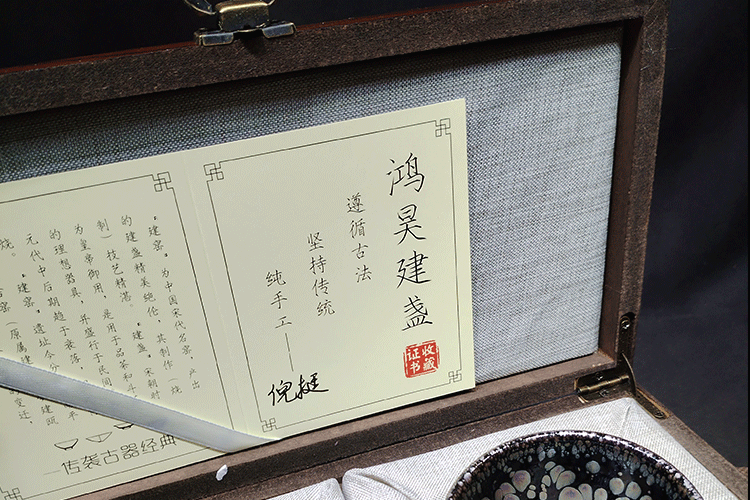 鸿昊建盏
收藏
证书
遵循古法
坚持传统
纯手工——
倪挺
“建窑”为中国宋代名窑，产出
的建盏精美绝伦，其制作（烧
制）技艺精湛。“建盏”宋朝时
为皇帝御用，是用于品茶和斗
的理想器具，并盛行于民间
元代中后期趋于衰落，
“建窑”遗址今分
建瓯
传袭古器经典